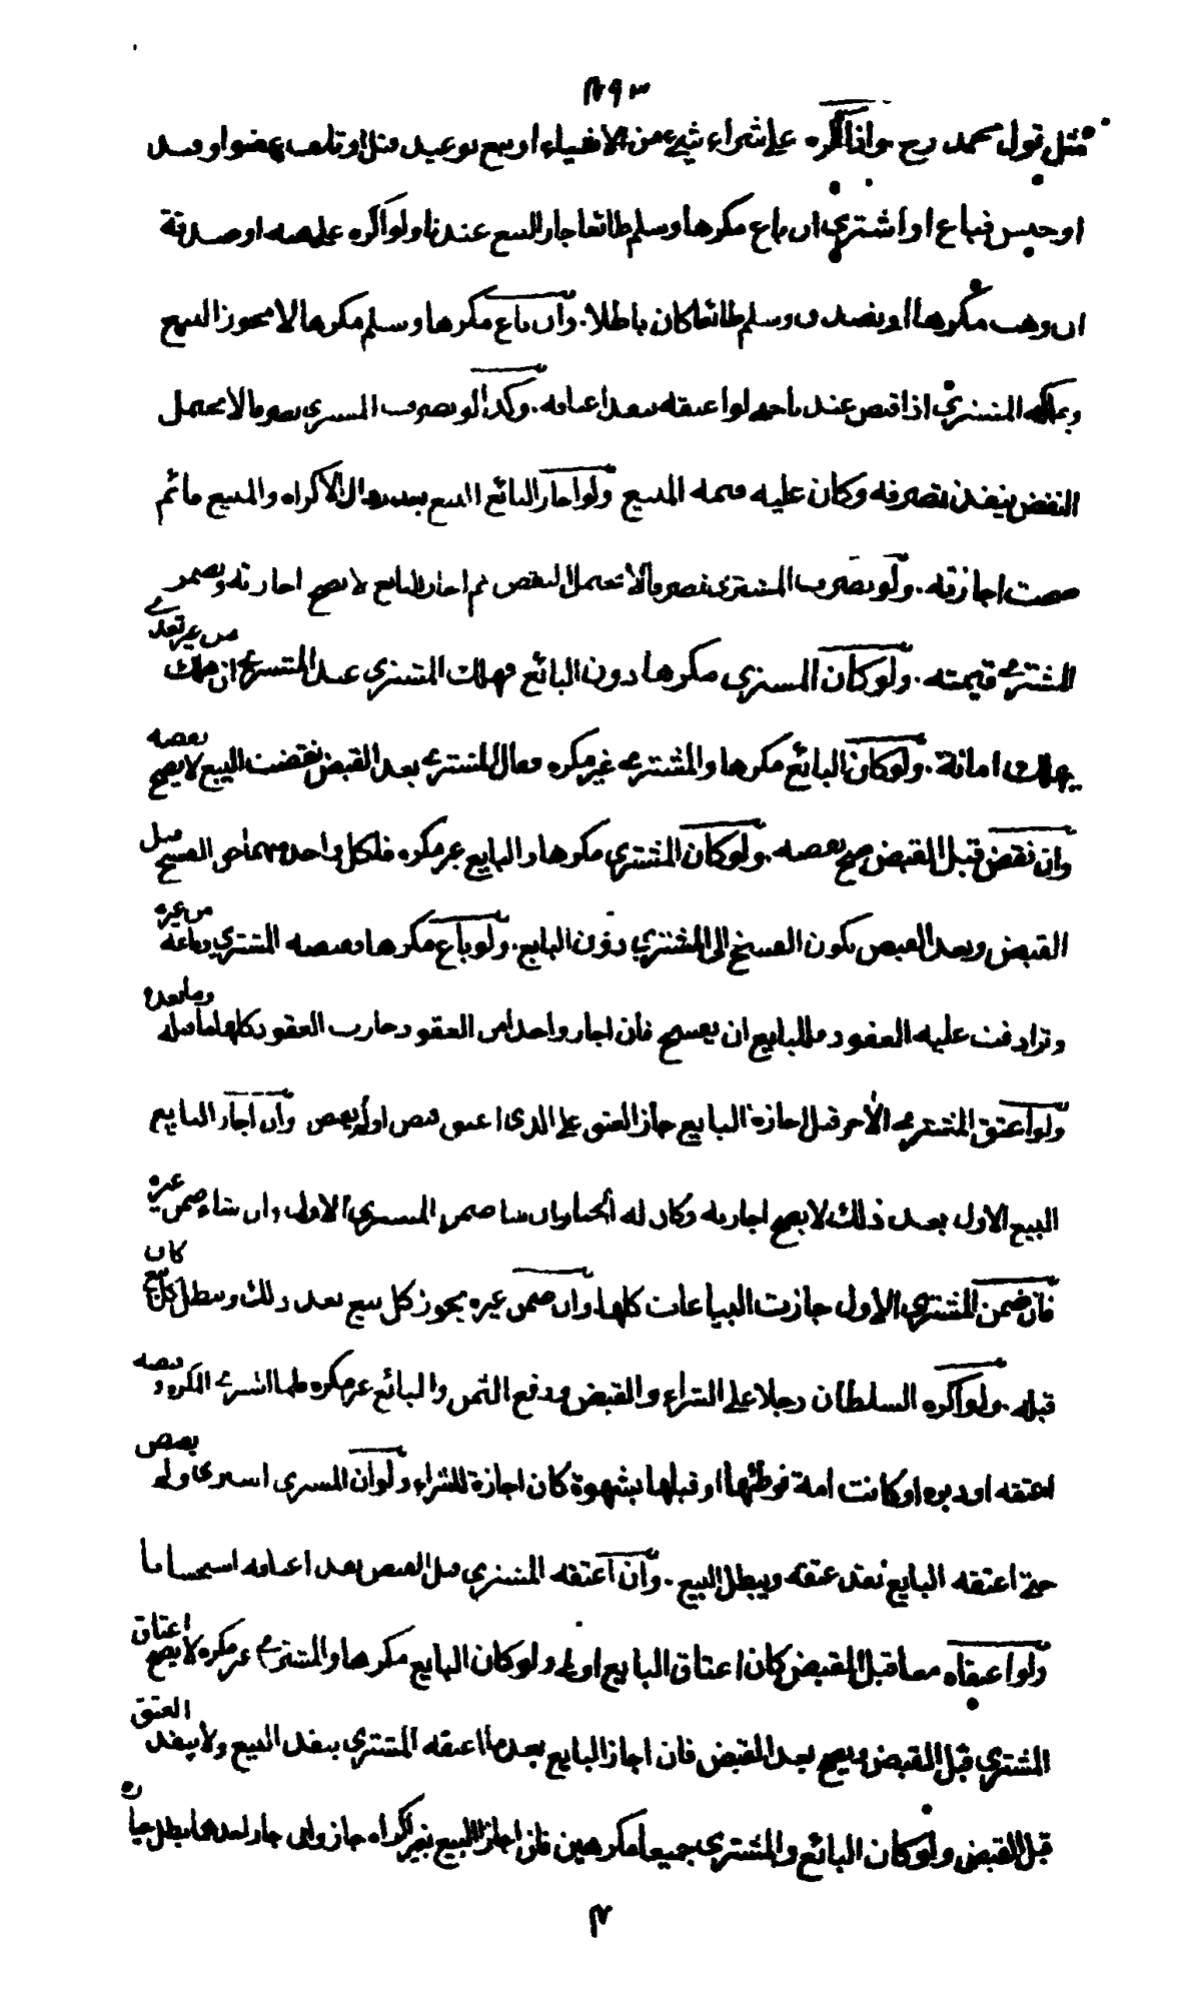 ٢٩٣
مثل قول محمد رح واذا اكره على شراء شيء من الاشياء او بيع بوعيد قتل او تلف عضو او قيد
او حبس فباع او اشترى ان باع مكرها وسلم طائعا جاز البيع عندنا ولو اكره على هبة او صدقة
ان وهب مكرها او تصدق وسلم طائعا كان باطلا. وان باع مكرها وسلم مكرها لا يجوز البيع
ويملكه المشتري اذا قبض عندنا حتى لو اعتقه ينفذ اعتاقه. وكذا لو تصرف المشتري تصرفا لا يحتمل
النقض ينفذ تصرفه وكان عليه قيمة المبيع ولو اجاز البائع البيع بعد زوال الاكراه والمبيع قائم
صحت اجازته. ولو تصرف المشتري تصرفا لا يحتمل النقض ثم اجاز البايع لا يصح اجازته ويضمن
المشتري قيمته. ولو كان المشتري مكرها دون البائع فهلك المشترى عند المشتري ان هلك من غير تعدي
يهلك امانة. ولو كان البائع مكرها والمشتري غير مكره فقال المشتري بعد القبض نقضت البيع لا يصح نقضه
وان نقض قبل القبض صح نقضه. ولو كان المشتري مكرها والبايع غير مكره فلكل واحد منهما حق الفسخ قبل
القبض وبعد القبض يكون الفسخ الى المشتري دون البايع. ولو باع مكرها وقبضه المشتري وباعه من غيره
وترادفت عليه العقود فللبايع ان يفسخ فان اجاز واحدا من العقود جازت العقود كلها ما قبله وما بعده
ولو اعتق المشتري الآخر قبل اجازة البايع جاز العتق على الذي اعتق قبض او لم يقبض وان اجاز البايع
البيع الاول بعد ذلك لا يصح اجازته وكان له الخيار ان شاء ضمن المشتري الاول وان شاء ضمن غيره
فان ضمن المشتري الاول جازت البياعات كلها. وان ضمن غيره يجوز كل بيع بعد ذلك ويبطل كل بيع كان
قبله. ولو اكره السلطان رجلا على الشراء والقبض ودفع الثمن والبائع غير مكره فلما اشترى المكره وقبضه
اعتقه او دبره او كانت امة فوطئها او قبلها بشهوة كان اجازة للشراء ولو ان المشتري اشترى ولم يقبض
حتى اعتقه البايع نفذ عتقه ويبطل البيع. وان اعتقه المشتري قبل القبض نفذ اعتاقه استحسانا
ولو اعتقاه معا قبل القبض كان اعتاق البايع اولى ولو كان البايع مكرها والمشتري غير مكره لا يصح اعتاق
المشتري قبل القبض ويصح بعد القبض فان اجاز البايع بعد ما اعتقه المشتري ينفذ البيع ولا ينفذ العتق
قبل القبض ولو كان البائع والمشتري جميعا مكرهين فان اجاز البيع بغير اكراه جاز وان جاز احدهما بطل خياره